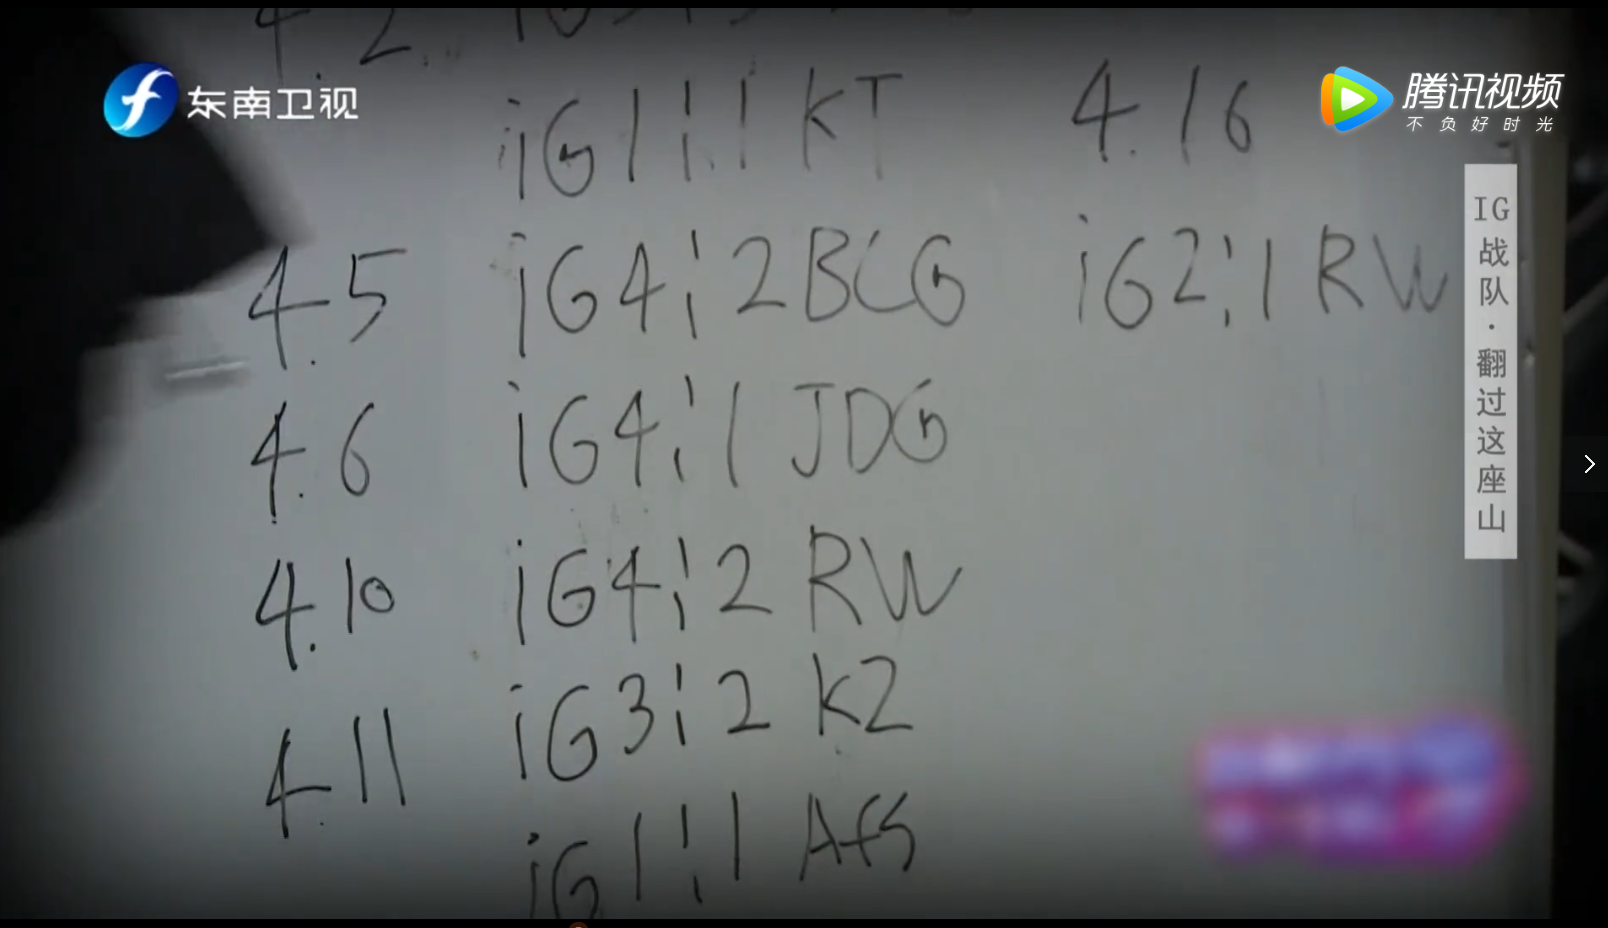 4.2
东南卫视
腾讯视频
不负好时光
iG 1:1 KT
4.16
4.5 iG 4:2 BCG
iG 2:1 RW
4.6 iG 4:1 JDG
4.10 iG 4:2 RW
4.11 iG 3:2 KZ
iG 1:1 Afs
IG战队·翻过这座山